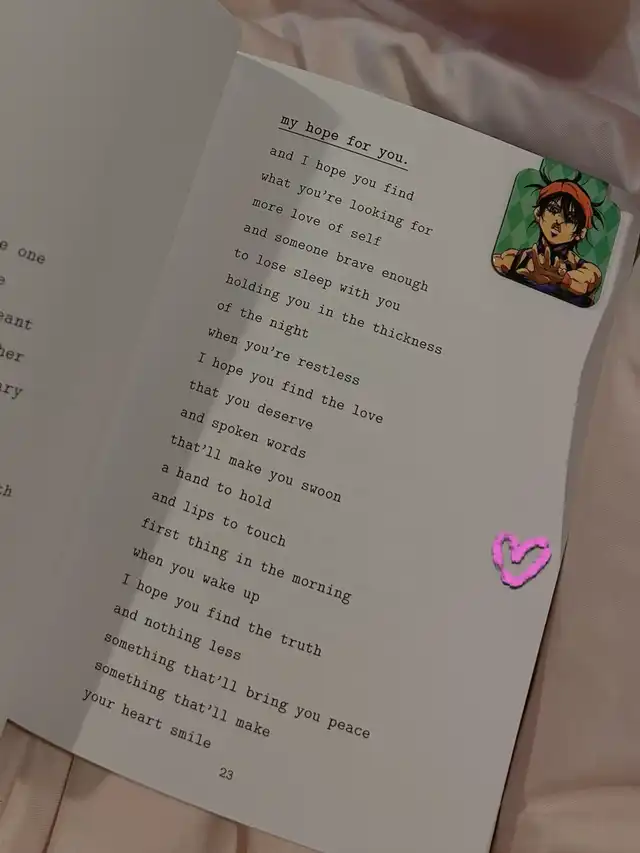 e one
e
eant
her
ary
th
my hope for you.
and I hope you find
what you're looking for
more love of self
and someone brave enough
to lose sleep with you
holding you in the thickness
of the night
when you're restless
I hope you find the love
that you deserve
and spoken words
that'll make you swoon
a hand to hold
and lips to touch
first thing in the morning
when you wake up
I hope you find the truth
and nothing less
something that'll bring you peace
something that'll make
your heart smile
23